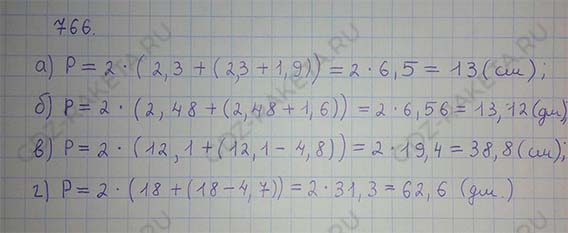 766.
а) P = 2 · (2,3 + (2,3 + 1,9)) = 2 · 6,5 = 13 (см);
б) P = 2 · (2,48 + (2,48 + 1,6)) = 2 · 6,56 = 13,12 (дм);
в) P = 2 · (12,1 + (12,1 - 4,8)) = 2 · 19,4 = 38,8 (см);
г) P = 2 · (18 + (18 - 4,7)) = 2 · 31,3 = 62,6 (дм.)
GDZ-RAKETA.RU